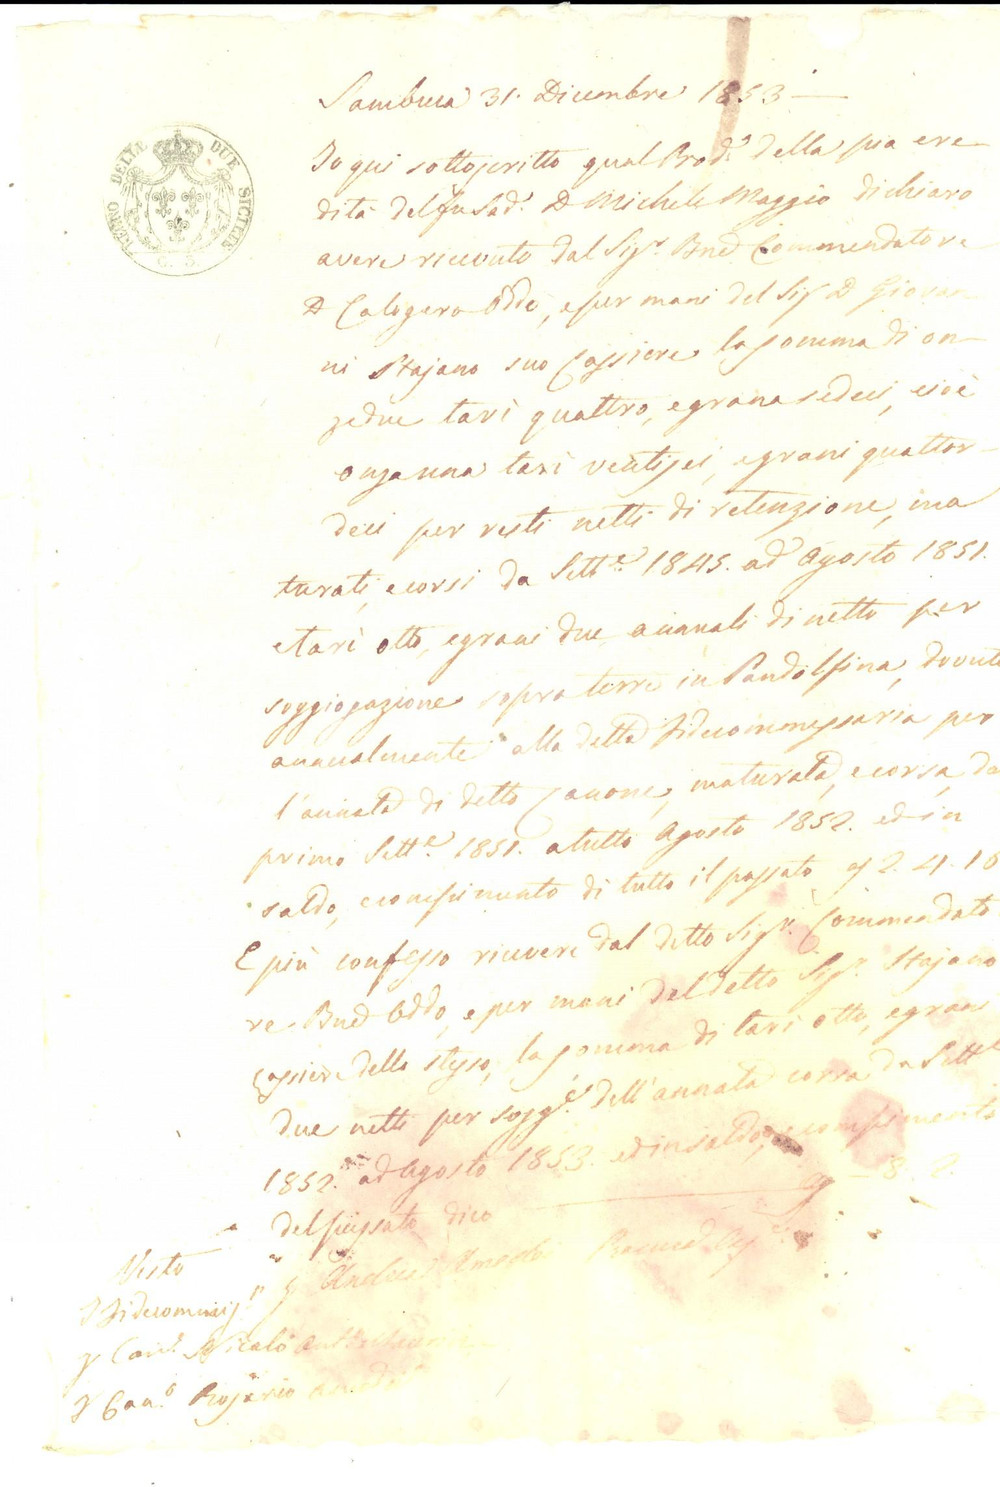 REGNO DELLE DUE SICILIE
G. S.
Sambuca 31. Dicembre 1853
Io qui sottoscritto qual Prod.e della pia ere
dità del fu Sad.e D. Michele Maggio dichiaro
avere ricevuto dal Sig.r Bne Commendatore
D. Calogero Oddo, e per mani del Sig. D. Giovan
ni Stajano suo Cassiere la somma di on
ze due tarì quattro, e grana sedeci, cioè
onza una tarì ventisei, e grani quattor-
deci per resti netti di retenzione, ma
turati, e corsi da Sett.e 1845. ad Agosto 1851.
e tarì otto, e grani due annuali di netto per
soggiogazione sopra terre in Pandolfina, dovuti
annualmente alla detta Fidecommessaria per
l'annata di detto Canone, maturata, e corsa, da
primo Sett.e 1851. a tutto Agosto 1852. ed in
saldo, e compimento di tutto il passato 2. 4. 16
E più confesso ricevere dal detto Sig.r Commendato
re Bne Oddo, e per mani del detto Sig.r Stajano
Cassiere dello stesso, la somma di tarì otto, e grani
due netti per sogg.e dell'annata corsa da Sett.e
1852. ad Agosto 1853. ed in saldo, e compimento
del passato dico — 8. 2.
Andrea Amodei
Visto
I Fidecommiss.ri
Can.co Nicolò
Can.co Rosario